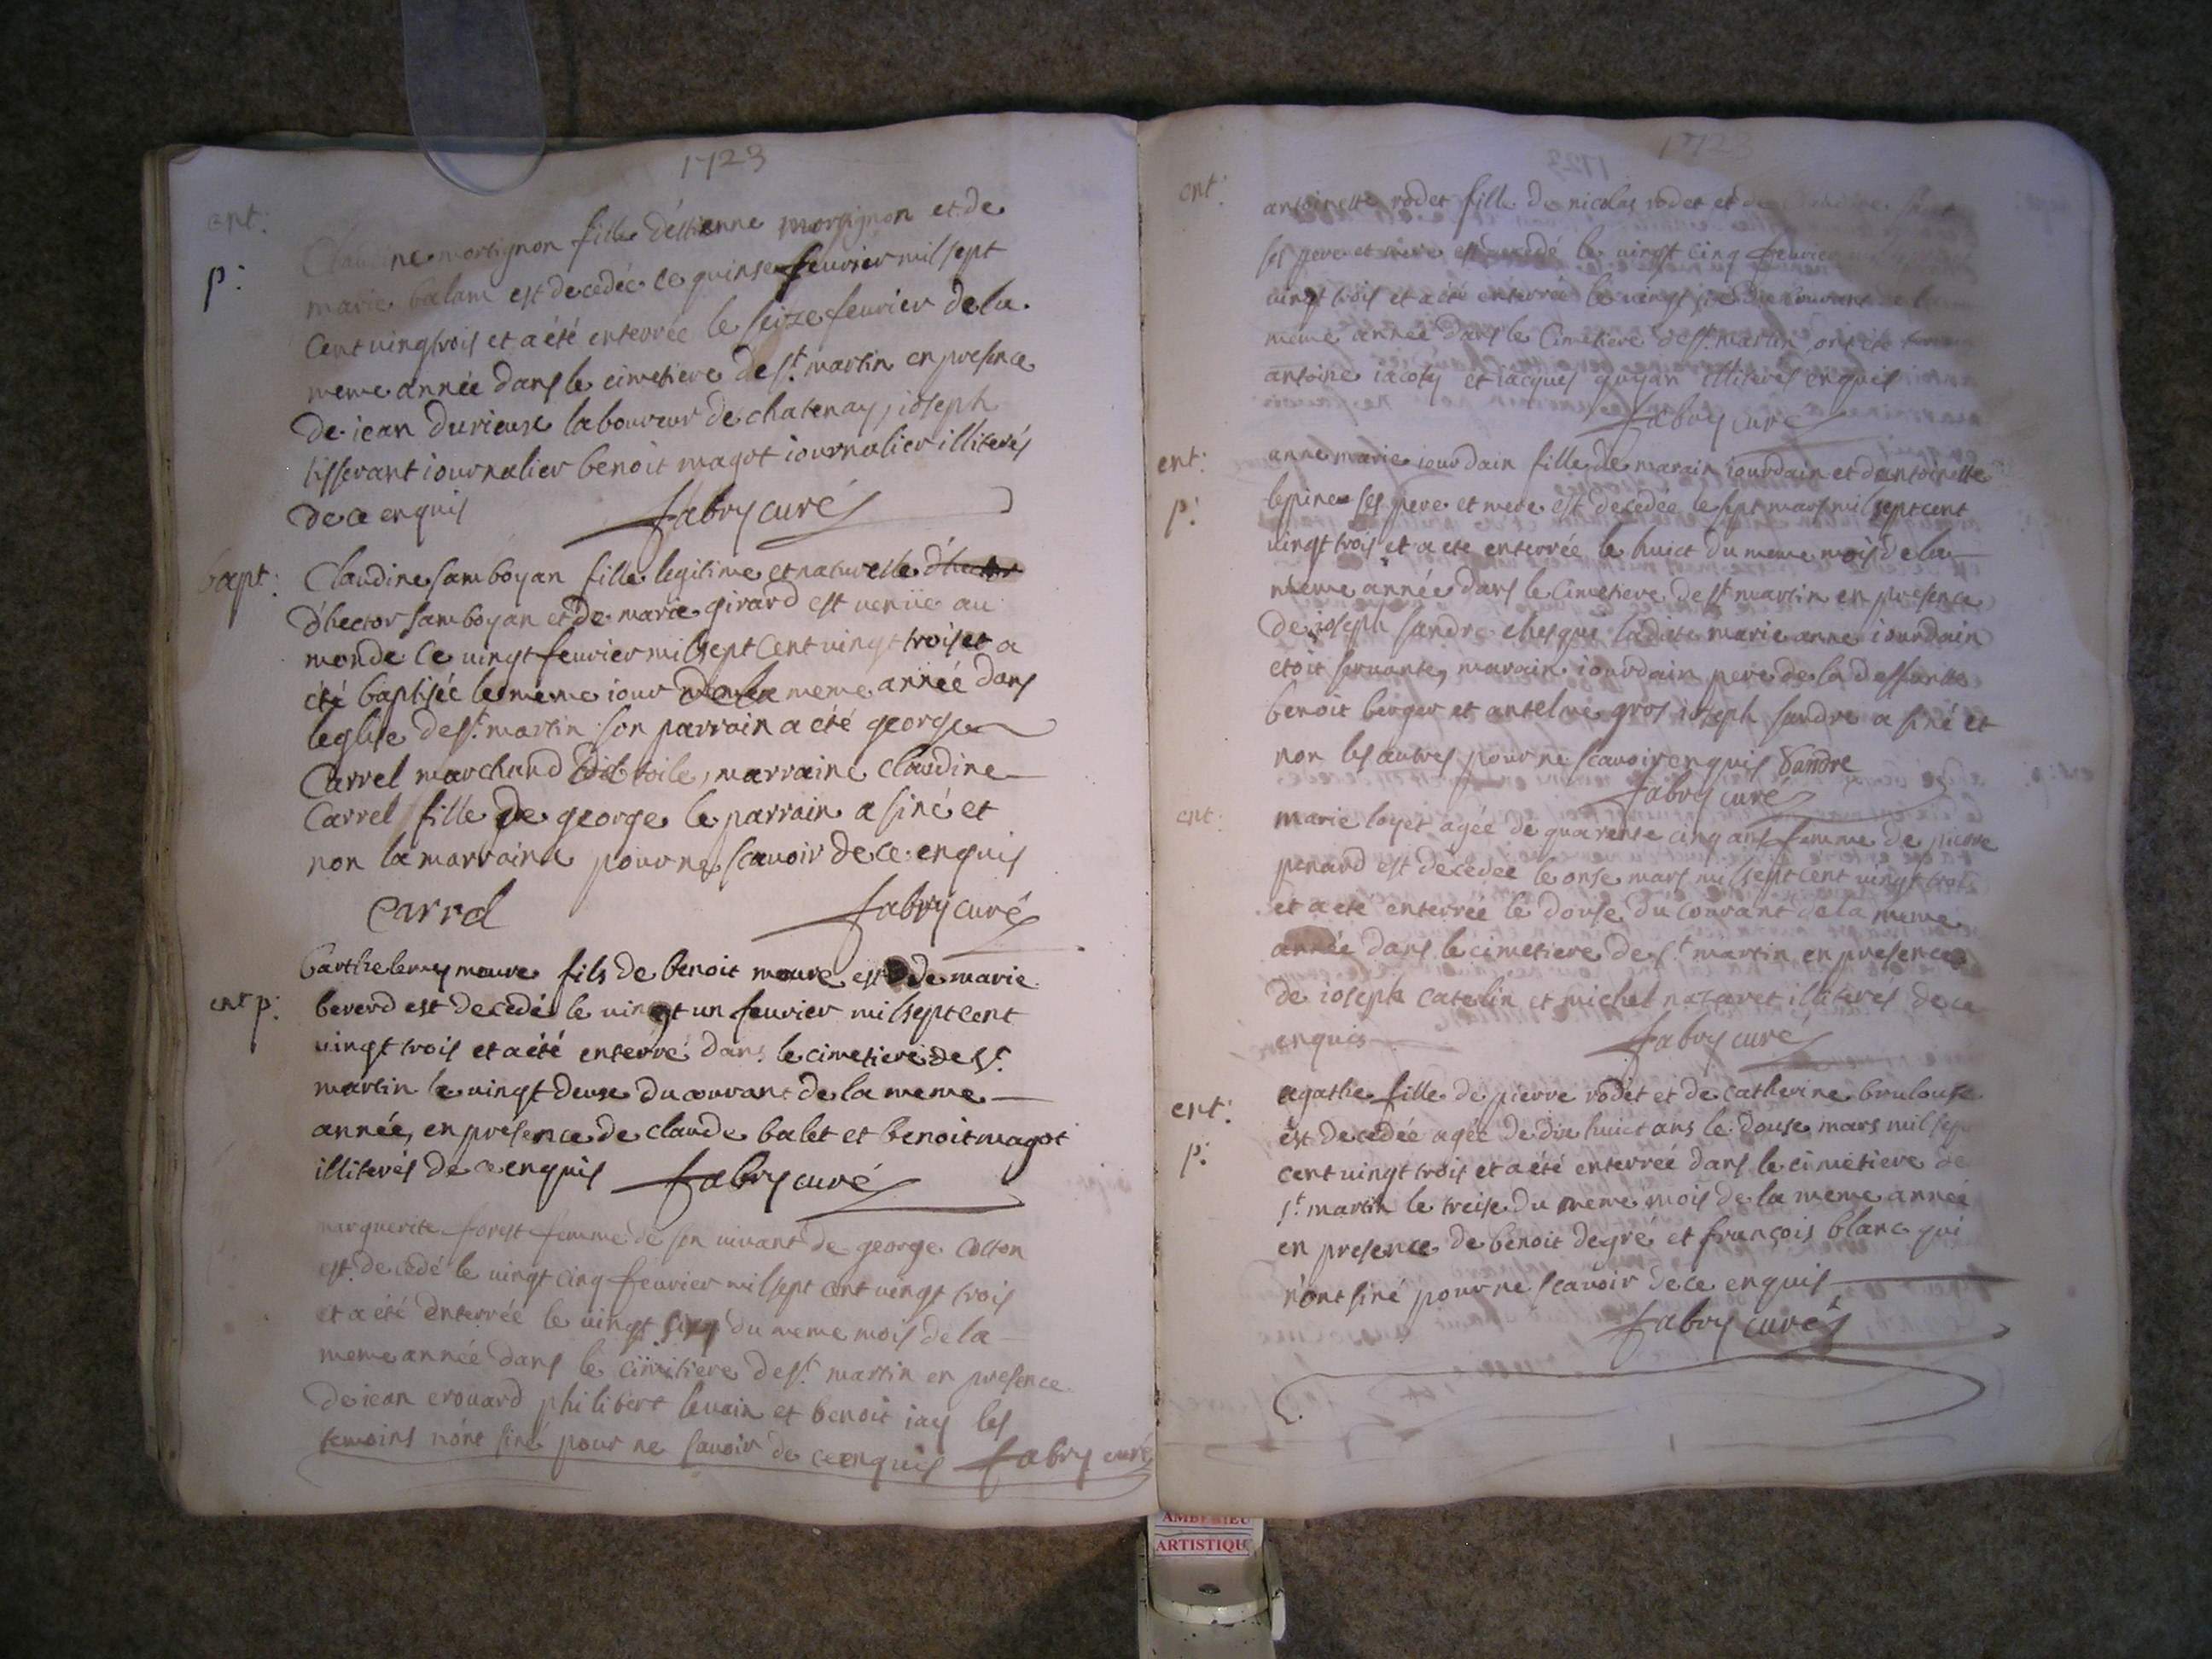 1723
ent:
Claudine mortignon fille d'estienne mortignon et de
p:
marie balam est decedée ce quinse feurier mil sept
cent uingtrois et a été enterrée le seize feurier de la
meme année dans le cimetiere de st. martin en presence
de iean durieux laboureur de chatenay, ioseph
tisserant iournalier benoit magot iournalier illiterés
de ce enquis fabry curé
bapt:
Claudine samboyan fille legitime et naturelle d'hector
d'hector samboyan et de marie girard est venüe au
monde le uingt feurier mil sept cent uingt trois et a
été baptisée le meme iour de la meme année dans
leglise de st. martin son parrain a été george
Carrel marchand toile, marraine claudine
Carrel fille de george le parrain a siné et
non la marraine pour ne scauoir de ce enquis
Carrel fabry curé
barthelemy meure fils de benoit meure et de marie
ent p:
beverd est decedé le uingt un feurier mil sept cent
uingt trois et a été enterré dans le cimetiere de st.
martin le uingt deux du courant de la meme
année, en presence de claude balet et benoit magot
illiterés de ce enquis fabry curé
marguerite forest femme de son uiuant de george colton
est decedé le uingt cinq feurier mil sept cent uingt trois
et a été enterrée le uingt six du meme mois de la
meme année dans le cimitiere de st. martin en presence
de iean erouard philibert leuain et benoit iay les
temoins n'ont siné pour ne sauoir de ce enquis fabry curé
1723
ent:
antoinette rodet fille de nicolas rodet et de
ses pere et mere est decedé le uingt cinq feurier
uingt trois et a été enterrée le uingt six du courant de la
meme année dans le cimetiere de st. martin ont été
antoine iacoty et iacques guyan illiterés enquis
fabry curé
ent:
anne marie iourdain fille de marain iourdain et d'antoinette
p:
lepine ses pere et mere est decedée le sept mars mil sept cent
uingt trois et a ete enterrée le huict du meme mois de la
meme année dans le cimetiere de st martin en presence
de ioseph sandre ches qui ladite marie anne iourdain
etoit seruante, marain iourdain pere de la deffunte
benoit berger et antelme gros ioseph sandre a siné et
non les autres pour ne scauoir enquis Sandre
fabry curé
ent:
marie loyet agée de quarente cinq ans femme de pierre
penard est decedée le onse mars mil sept cent uingt trois
et a ete enterrée le douse du courant de la meme
année dans le cimetiere de st. martin en presence
de ioseph catelin et michel nazaret illiteres de ce
enquis fabry curé
ent:
agathe fille de pierre rodet et de catherine brulouse
est decedée agée de dix huict ans le douse mars mil sep
p:
cent uingt trois et a été enterrée dans le cimetiere de
st. martin le treise du meme mois de la meme année
en presence de benoit degré et françois blanc qui
n'ont siné pour ne scauoir de ce enquis
fabry curé
AMBERIEU
ARTISTIQU